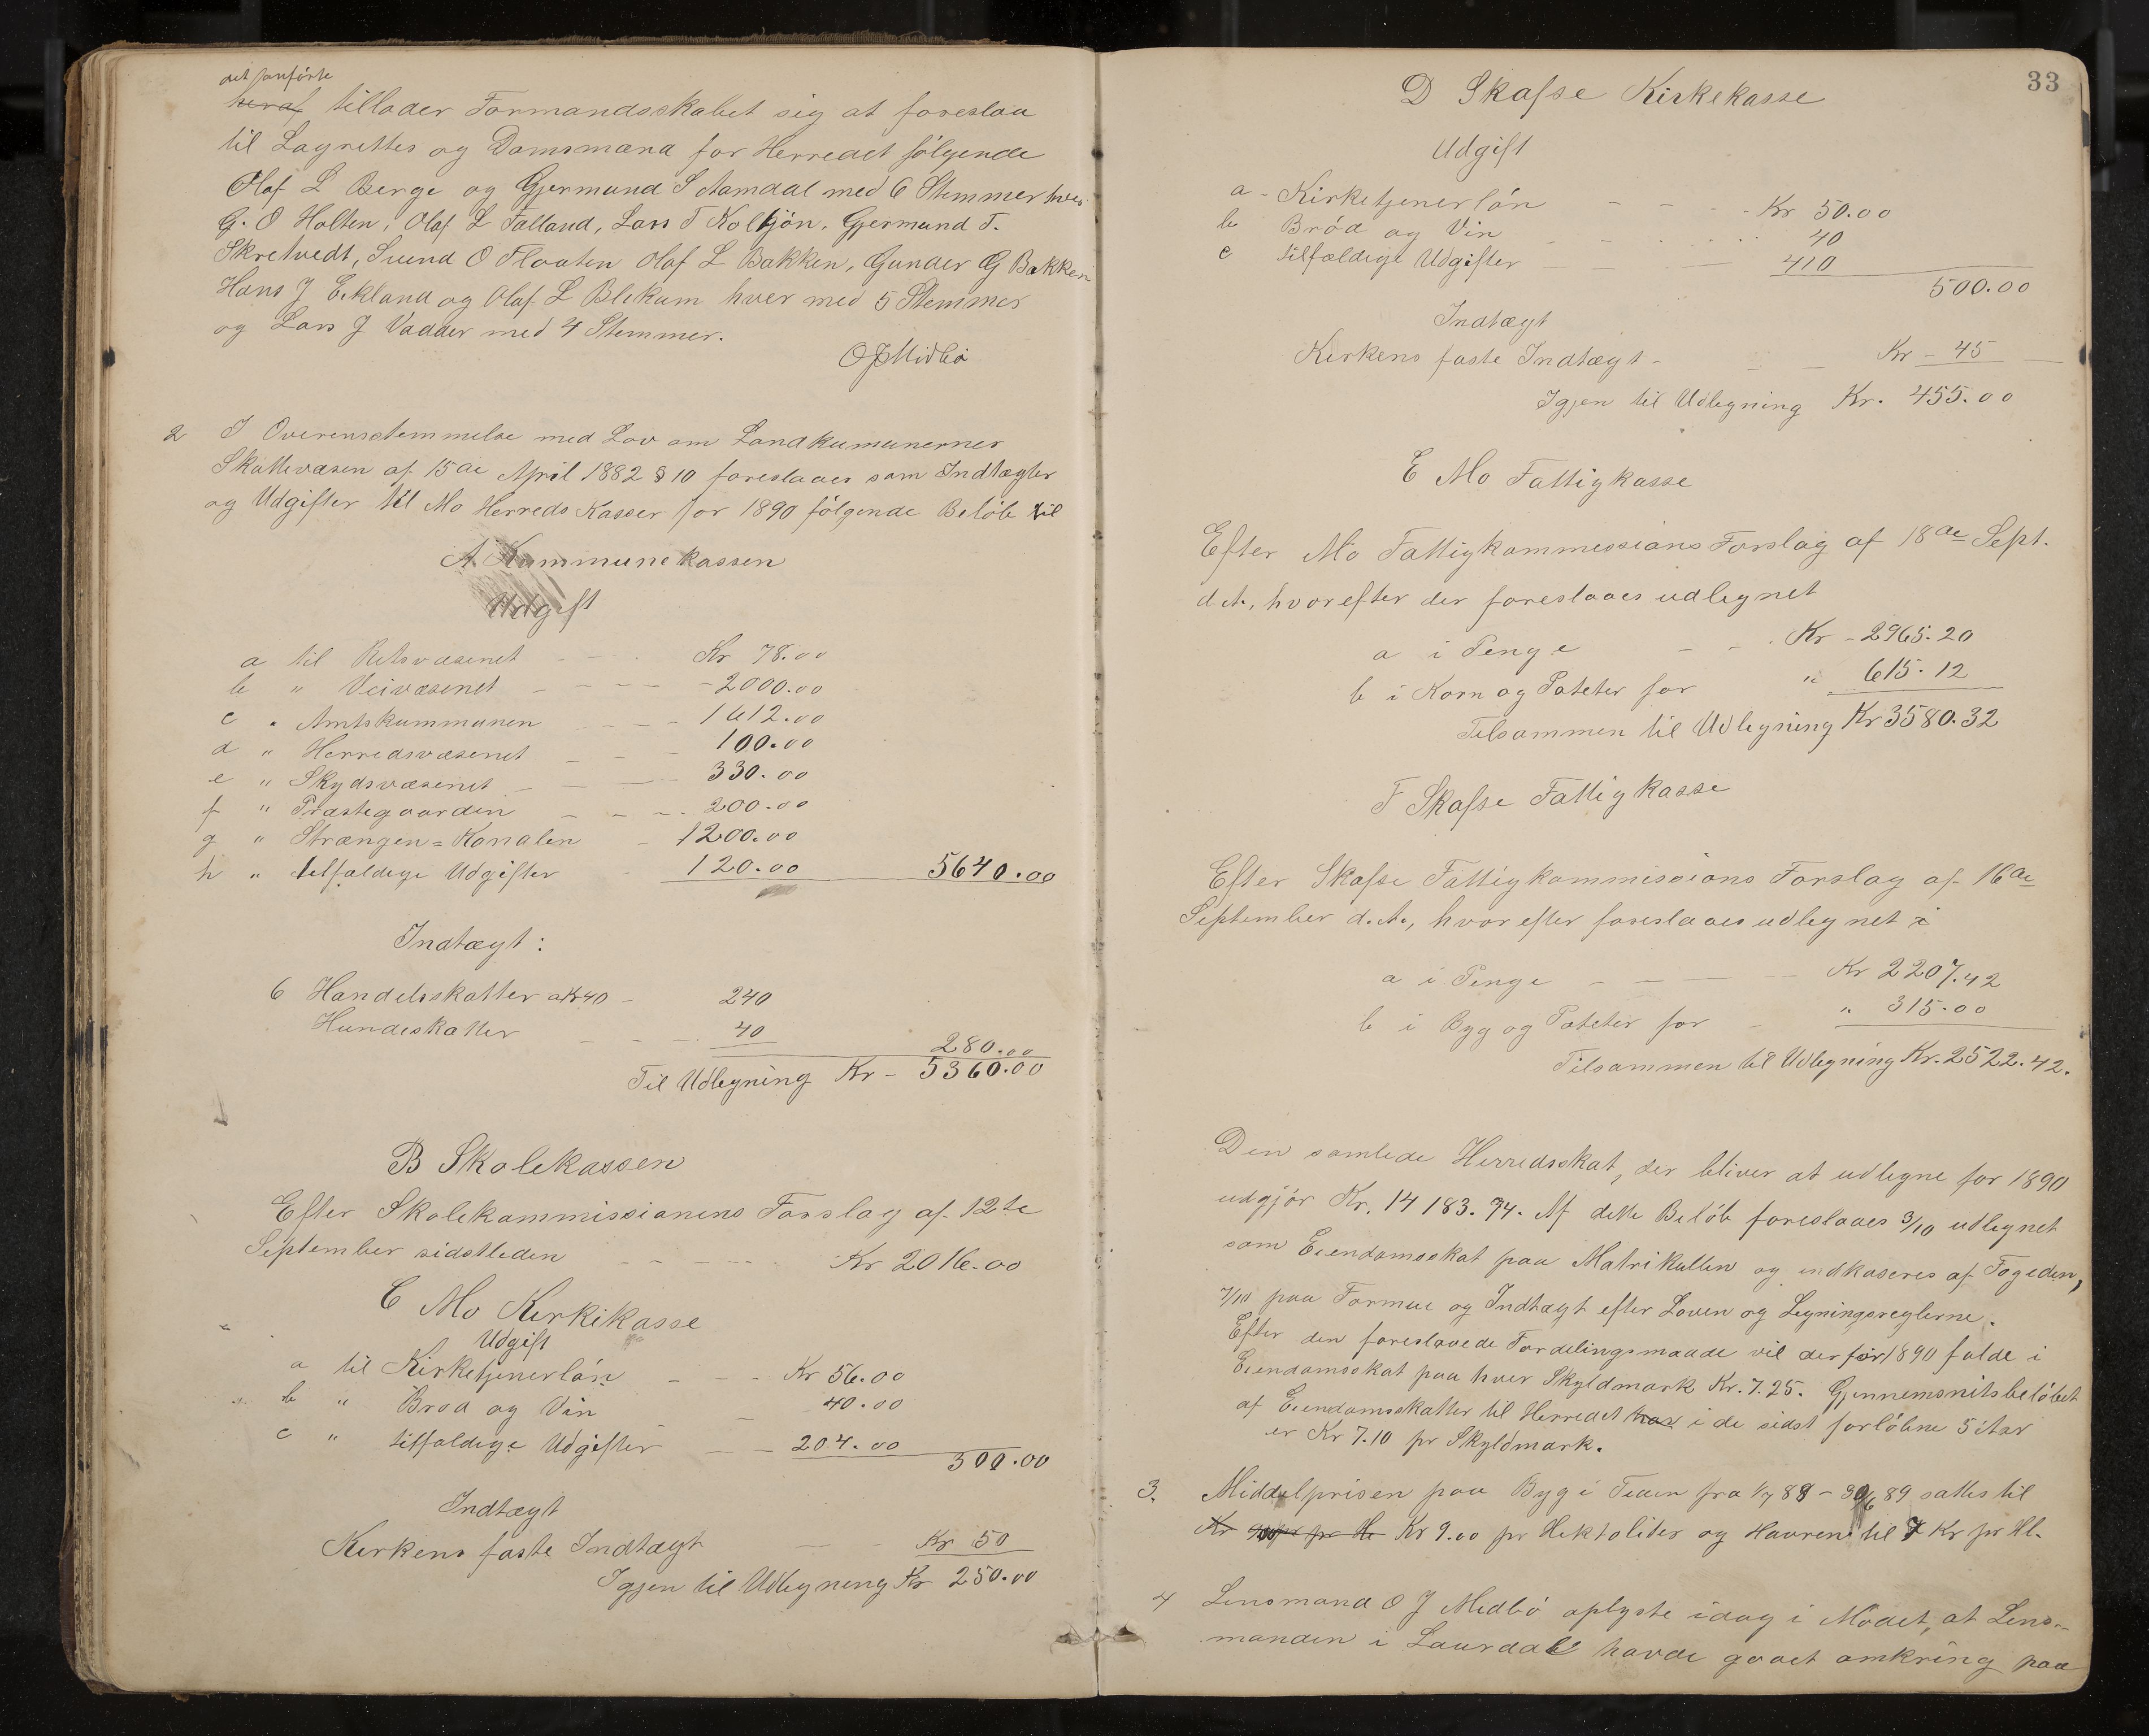 det anførte
heraf tillader Formandsskabet sig at foreslaa
til Lagrettes og Domsmænd for Herredet følgende
Olaf L Berge og Gjermund S Aamdal med 6 Stemmer hver
G. O Holten, Olaf L Falland, Lars T Koltjøn, Gjermund T.
Skretvedt, Svend O Flaaten Olaf L Bakken, Gunder G Bakken
Hans J Eikland og Olaf L Blekum hver med 5 Stemmer
og Lars J Vadder med 4 Stemmer.
O J Midbø
2 I Overensstemmelse med Lov om Landkumunernes
Skattevæsen af 15de April 1882 § 10 foreslaaes som Indtægter
og Udgifter til Mo Herreds Kasser for 1890 følgende Beløb til
A. Kommunekassen
Udgift
a til Retsvæsenet - - - Kr 78.00
b " Veivæsenet - - - - 2000.00
c " Amtskummunen - - - 1612.00
d " Herredsvæsenet - - - 100.00
e " Skydsvæsenet - - - 330.00
f " Præstegaarden - - - 200.00
g " Strængen=Kanalen - 1200.00
h " tilfældige Udgifter - 120.00 5640.00
Indtægt:
6 Handelsskatter a Kr 40 - 240
Hundeskatter - - - - 40
280.00
Til Udlegning Kr - 5360.00
B Skolekassen
Efter Skolekommissionens Forslag af 12te
September sidstleden - - - - Kr 2016.00
C Mo Kirkikasse
Udgift
a til Kirketjenerløn - - - Kr 56.00
b " Brød og Vin - - 40.00
c " tilfældige Udgifter - - 204.00
300.00
Indtægt
Kirkens faste Indtægt - - Kr 50
Igjen til Udlegning Kr 250.00
33
D Skafse Kirkekasse
Udgift
a - Kirketjenerløn - - - Kr 50.00
b Brød og Vin - - - - 40
c tilfældige Udgifter - - - 410
500.00
Indtægt
Kirkens faste Indtægt - - - Kr - 45
Igjen til Udlegning Kr. 455.00
E Mo Fattigkasse
Efter Mo Fattigkommissions Forslag af 18de Sept.
d.A., hvorefter der foreslaaes udlegnet
a i Penge - - . Kr - 2965.20
b i Korn og Poteter for " 615.12
Tilsammen til Udlegning Kr 3580.32
F Skafse Fattigkasse
Efter Skafse Fattigkommissions Forslag af 16de
September d.A., hvorefter foreslaaes udlegnet i
a i Penge - - - - Kr 2207.42
b i Byg og Poteter for - " 315.00
Tilsammen til Udlegning Kr. 2522.42.
Den samlede Herredsskat, der bliver at udlegne for 1890
udgjør Kr. 14 183.74. Af dette Beløb foreslaaes 3/10 udlegnet
som Eiendomsskat paa Matrikullen og indkaseres af Fogeden,
7/10 paa Formue og Indtægt efter Loven og Legningsreglerne.
Efter den foreslaaede Fordelingsmaade vil der for 1890 falde i
Eiendomsskat paa hver Skyldmark Kr. 7.25. Gjennemsnitsbeløbet
af Eiendomsskatter til Herredet har i de sidst forløbne 5 Aar
er Kr 7.10 pr Skyldmark.
3. Middelprisen paa Byg i Tiden fra 1/7 88 - 30/6 89 sattes til
Kr 9.00 pr Hl Kr 9.00 pr Hektoliter og Havren til 7 Kr pr Hl.
4 Lensmand O J Midbø oplyste idag i Mødet, at Lens-
manden i Laurdal havde gaaet omkring paa